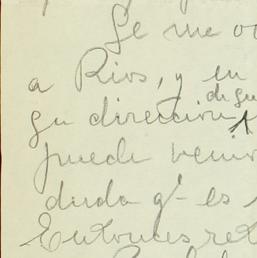 Se me oc
a Rios, y en
de su
su dirección
puede venir
duda q' es
Entonces ret